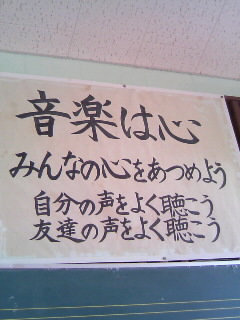 音楽は心
みんなの心をあつめよう
自分の声をよく聴こう
友達の声をよく聴こう